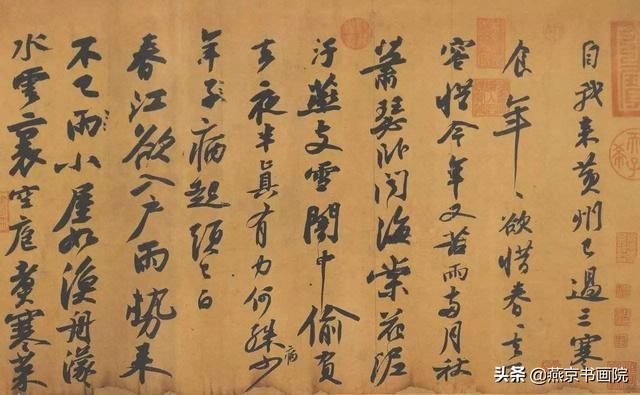 自我来黄州已過三寒
食年〻欲惜春〻去不
容惜今年又苦雨兩月秋
蕭瑟卧聞海棠花泥
汙燕支雪闇中偷負
去夜半真有力何殊少
病
年子病起頭已白
春江欲入户雨勢来
不已雨小屋如漁舟濛〻
水雲裏空庖煮寒菜
头条@燕京书画院